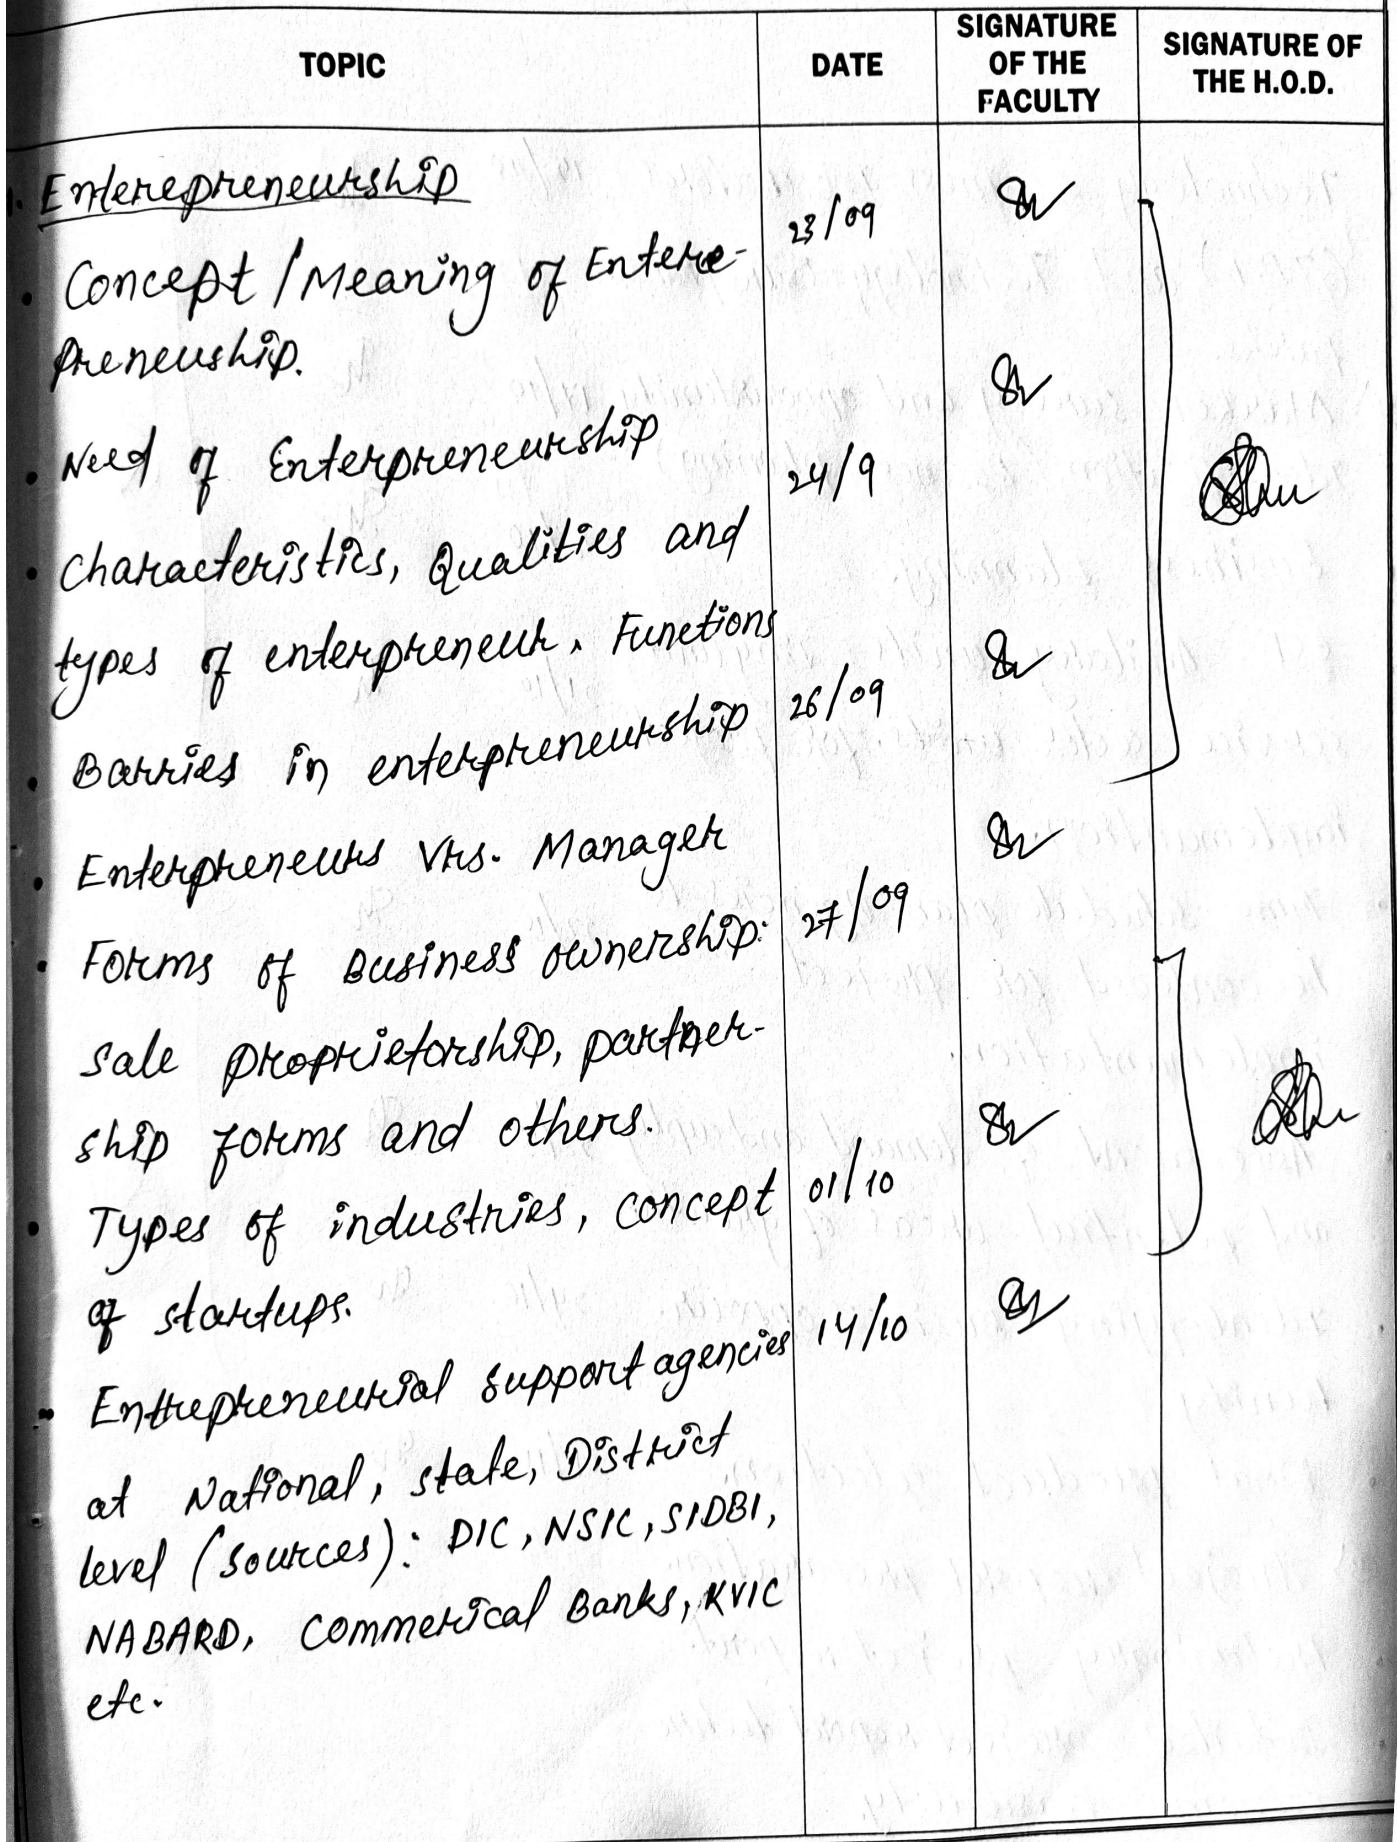 TOPIC DATE SIGNATURE OF THE FACULTY SIGNATURE OF THE H.O.D.
1. Enterepreneurship
• Concept / Meaning of Entere- 23/09
preneuship.
• Need of Enterpreneurship 24/9
• Characteristics, Qualities and
types of enterpreneur. Functions
• Barries in enterpreneurship 26/09
• Enterpreneurs Vrs. Manager
• Forms of Business ownership: 27/09
Sale proprietorship, partner-
ship forms and others.
• Types of industries, concept 01/10
of startups.
• Entrepreneurial support agencies 14/10
at National, state, District
level (sources): DIC, NSIC, SIDBI,
NABARD, Commerical Banks, KVIC
etc.